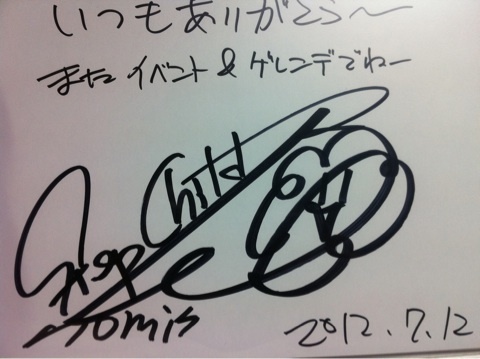 いつもありがとう〜
また イベント & ゲレンデでねー
Child
Step
Tomis
2012.7.12